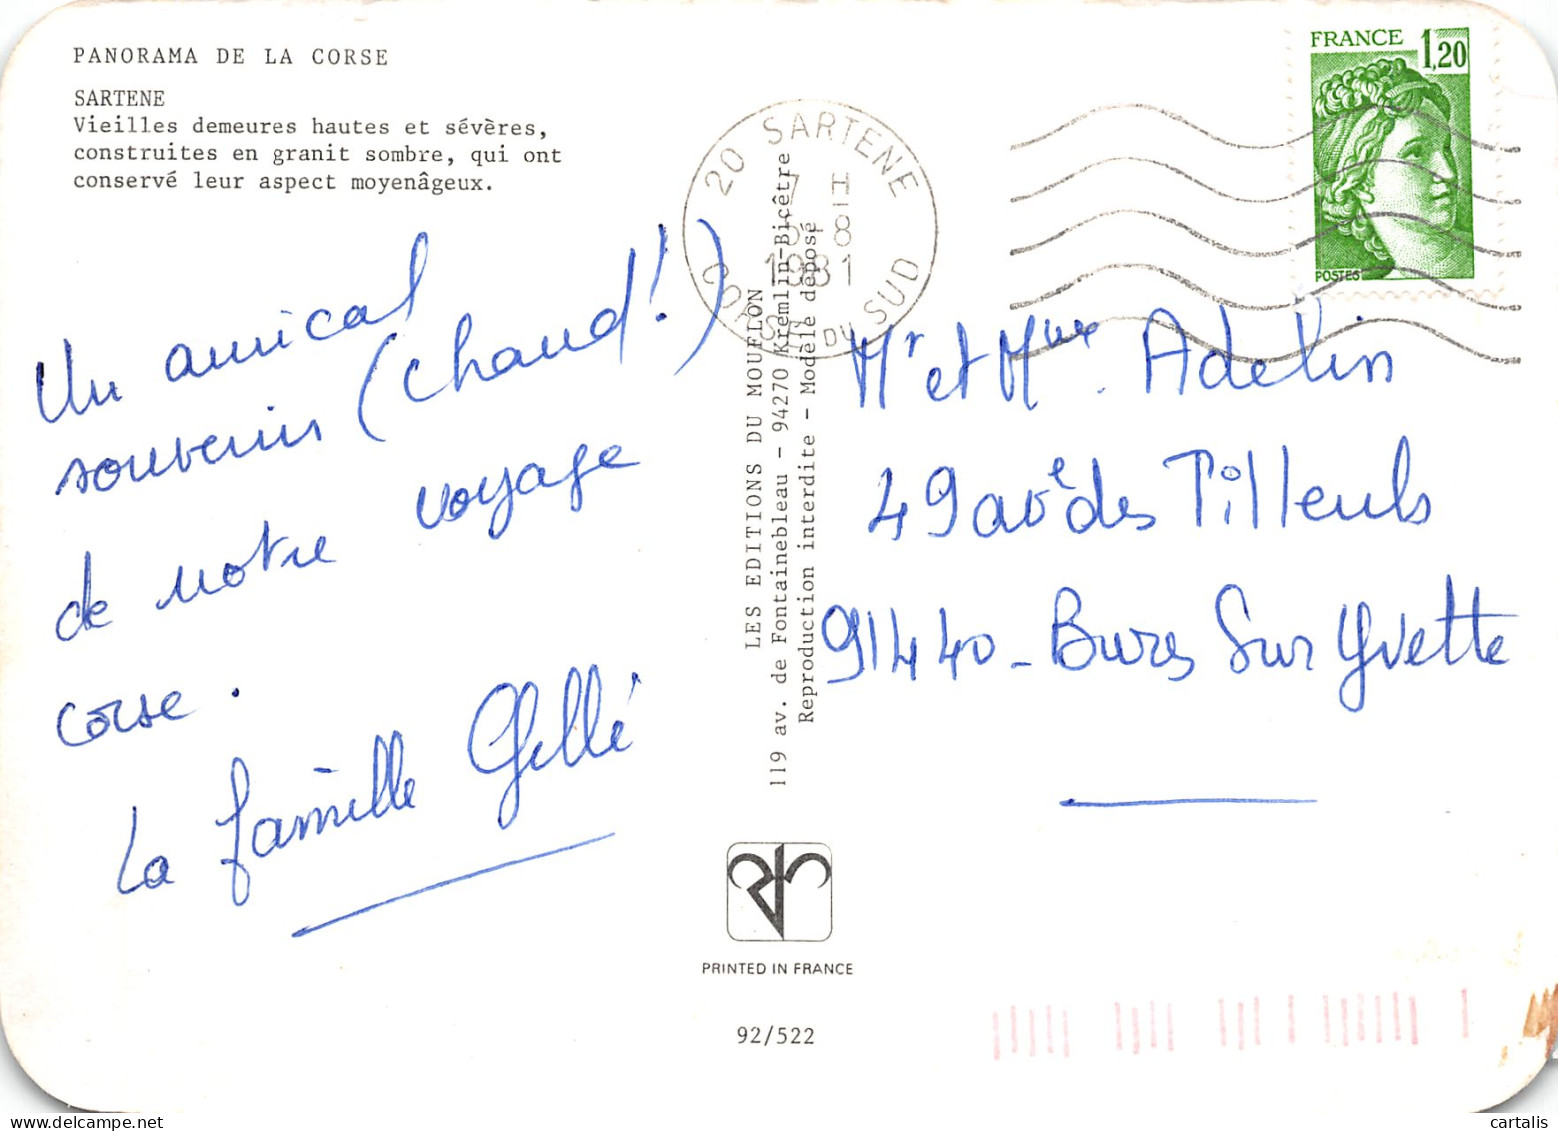 PANORAMA DE LA CORSE
SARTENE
Vieilles demeures hautes et sévères,
construites en granit sombre, qui ont
conservé leur aspect moyenâgeux.
Un amical
souvenir (chaud!)
de notre voyage
corse.
La famille Gellé
LES EDITIONS DU MOUFLON
119 av. de Fontainebleau - 94270 Kremlin-Bicêtre
Reproduction interdite - Modèle déposé
PRINTED IN FRANCE
92/522
20 SARTENE
7 H
5-8
1981
CORSE DU SUD
FRANCE 1,20
POSTES
Mr et Mme Adelin
49 ave des Tilleuls
91440 - Bures Sur Yvette
cartalis
delcampe.net